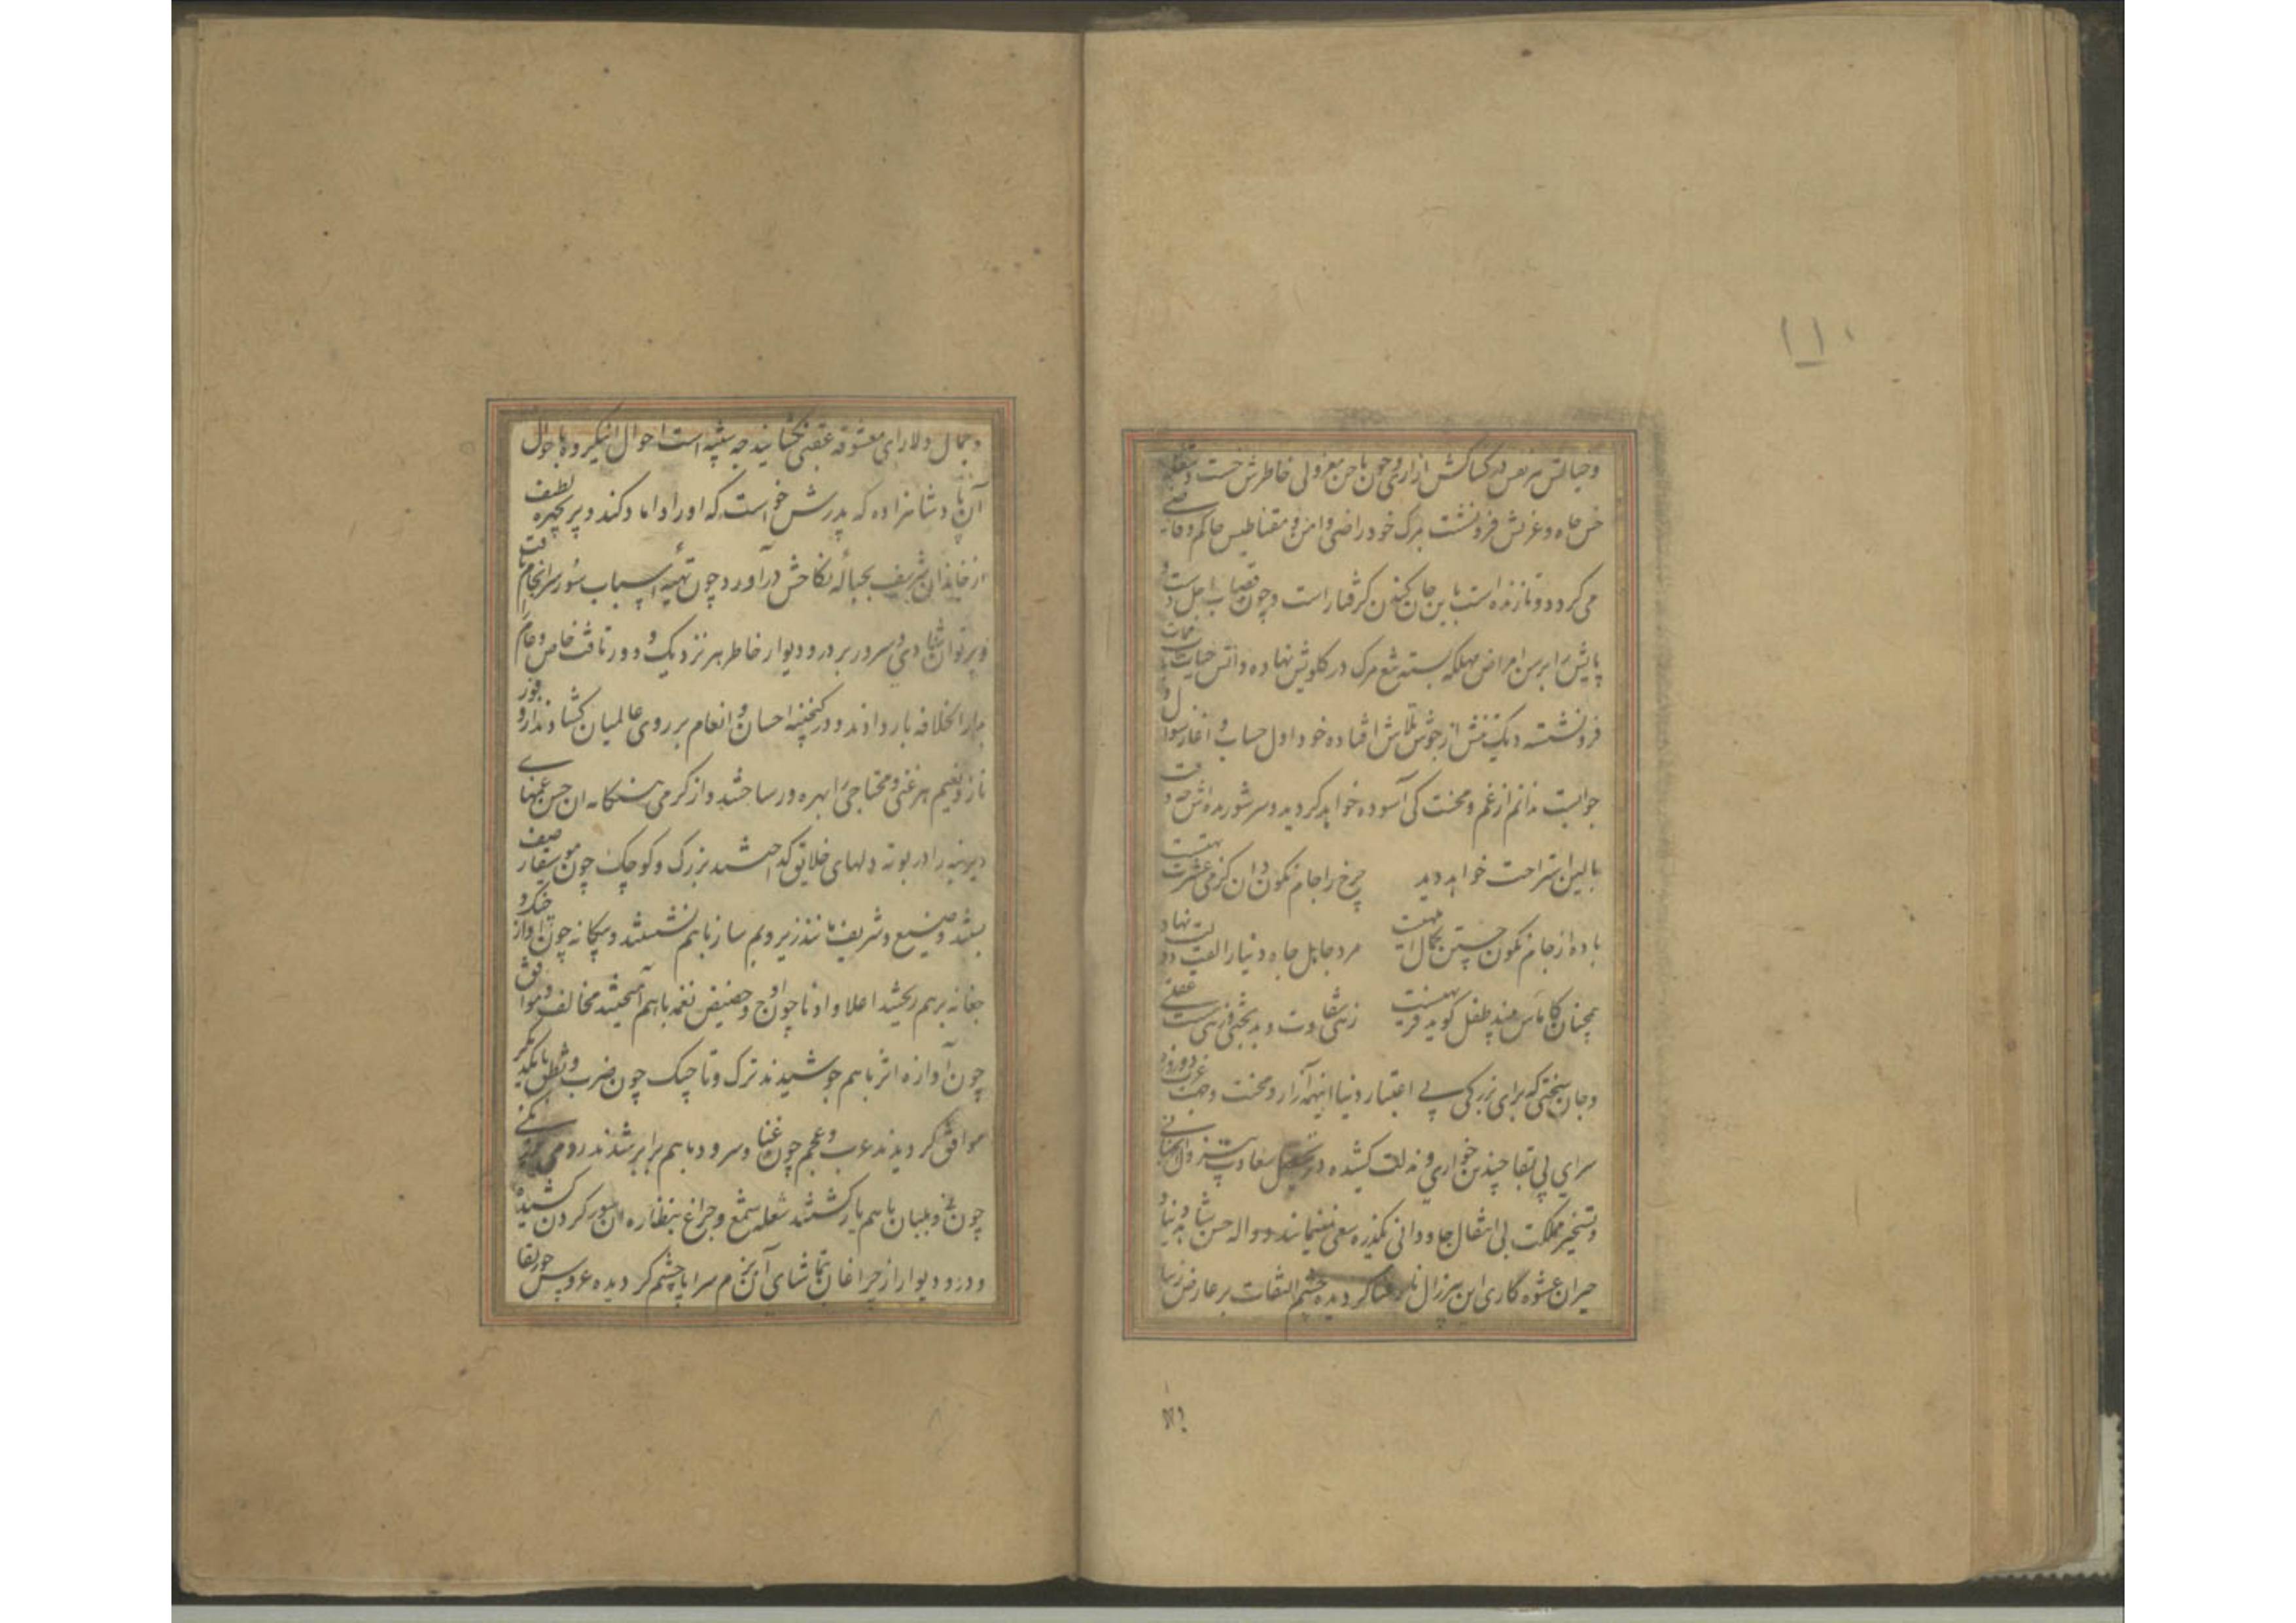 ۱۱۰
و خیالش مریض در کشاکش آزار و چون ناخن معزولی خاطرش خست و شعله
خس جاه و عزتش فرونشست بمرگ خود راضی و
می گردد و تا زنده است باین جان کندن گرفتار است و چون قصاب اجل دست و
پایش را برسن امراض مهلکه بسته تیغ مرگ در گلویش نهاد و آتش حیات
فرونشسته دیک نفس از جوش تلاش افتاده خود اول حساب و آغاز سؤال و
جوابست ندانم از غم و محنت کی آسوده خواهد گردید و سر شوریده اش چه وقت
ببالین استراحت خواهد دید چرخ را جام نگون دان کز می عشرت تهیست
باده از جام نگون جستن کمال ابلهیست مرد جاهل جاه دنیا را لقب دولت نهاد
همچنان کاماس بیند طفل گوید فربهیست زهی شقاوت و بدبختی زهی سست عقلی
و جان سختی که برای بزرگی بی اعتبار دنیا اینهمه آزار و محنت و جهت غرت دو روزه
سرای بی بقا چندین خواری و مذلت کشیده در تحصیل سعادت
و تسخیر مملکت بی انتقال جاودانی یکذره سعی نمینمایند و واله حسن شاهد دنیا و
حیران عشوه کاری این پیرزال نارعنا گردیده چشم التفات بر عارض زیبا
و جمال دلارای معشوقه عقبی نگشایند چه شبیه است احوال اینگروه باحوال
آن پادشاهزاده که پدرش خواست که او را داماد کند و پری چهره لطیف
از خاندان شریف بحباله نکاحش درآورد چون تهیه اسباب سور سرانجام یافت
و پرتو آن شادی و سرور بر در و دیوار خاطر هر نزدیک و دور تافت خاص و عام را
بدارالخلافه بار دادند و در گنجینه احسان و انعام بر روی عالمیان گشادند از وفور
ناز و نعیم هر غنی و محتاجی را بهره ور ساختند و از گرمی هنگامه آن جشن غمهای
دیرینه را در بوته دلهای خلایق گداختند بزرگ و کوچک چون موسیقار صف
بستند وضیع و شریف مانند زیر و بم ساز باهم نشستند و بیگانه چون آواز چنگ و
چغانه برهم ریختند اعلا و ادنا چون اوج و حضیض نغمه باهم آمیختند مخالف و موافق
چون آوازه اثر باهم جوشیدند ترک و تاجیک چون ضرب و نطق با یکدیگر
موافق گردیدند عرب و عجم چون غنا و سرود باهم برابر شدند رومی و زنگی
چون نی و بلبان باهم یار گشتند شعله شمع و چراغ بنظاره آن سور گردن کشیده
و در و دیوار از چراغان بتماشای آن بزم سراپا چشم گردیده عروس حورلقا